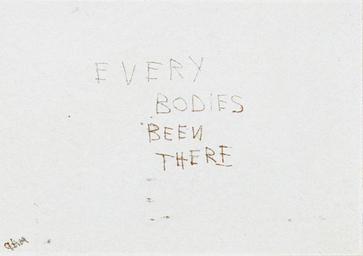 EVERY
BODIES
BEEN
THERE